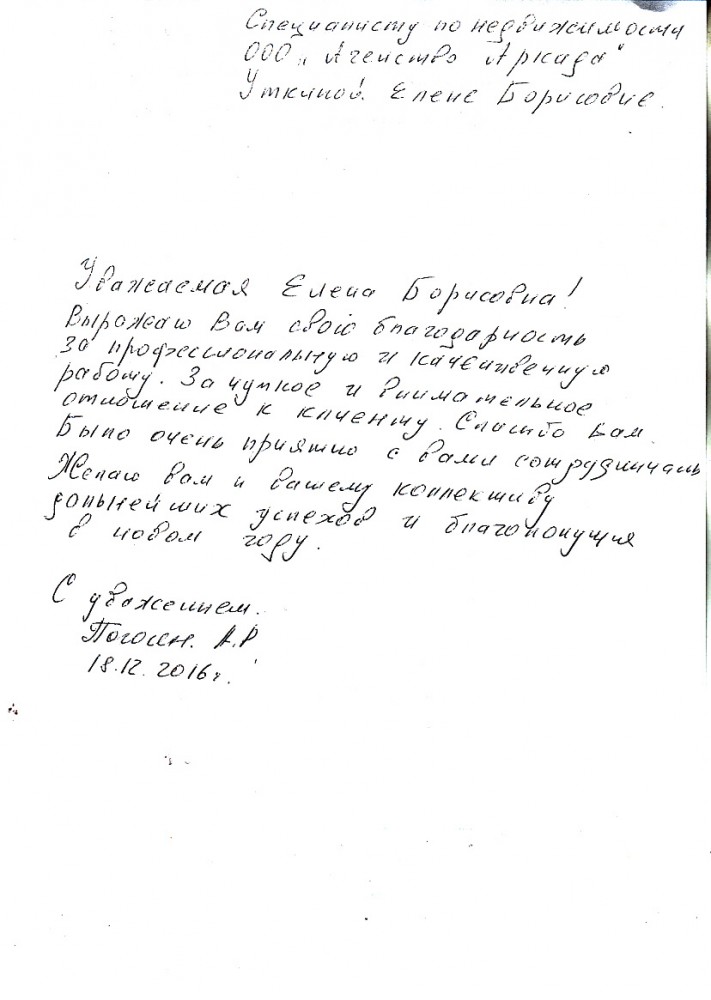 Специалисту по недвижимости
ООО „Агенство Аркада"
Уткиной Елене Борисовне.
Уважаемая Елена Борисовна!
Выражаю Вам свою благодарность
за профессиональную и качественную
работу. За чуткое и внимательное
отношение к клиенту. Спасибо Вам.
Было очень приятно с вами сотрудничать
Желаю вам и вашему коллективу
дальнейших успехов и благополучия
в новом году.
С уважением.
Погосян. А.Р
18.12.2016г.